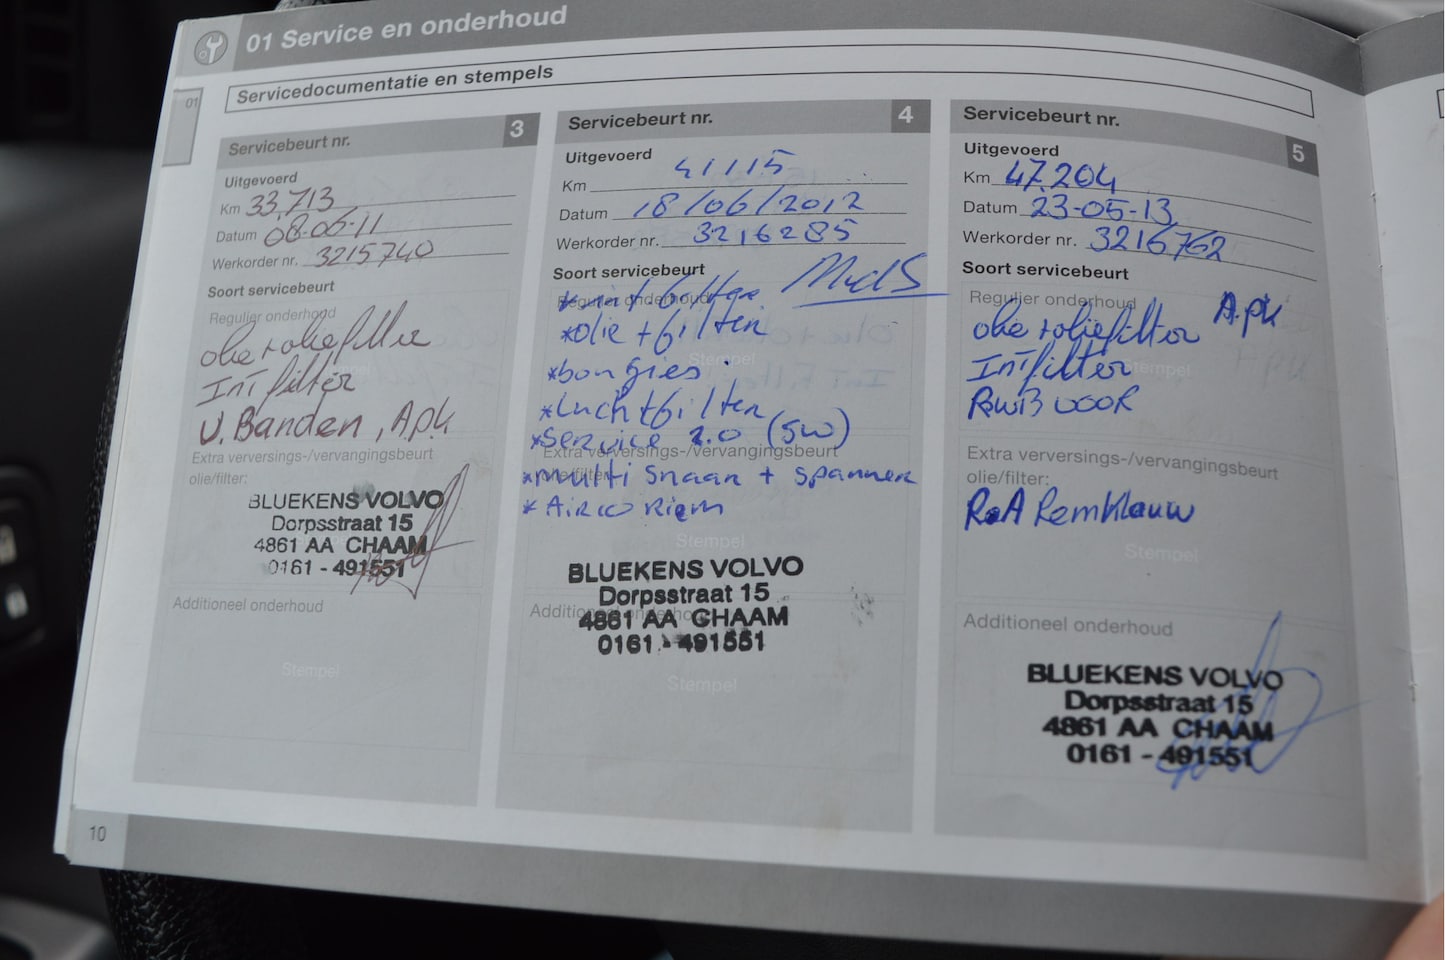 01 Service en onderhoud
01
Servicedocumentatie en stempels
Servicebeurt nr. 3
Uitgevoerd
Km 33.713
Datum 08-06-11
Werkorder nr. 3215740
Soort servicebeurt
Regulier onderhoud
olie + oliefilter
Int filter
V. Banden, Apk
Extra verversings-/vervangingsbeurt
olie/filter:
BLUEKENS VOLVO
Dorpsstraat 15
4861 AA CHAAM
0161 - 491551
Additioneel onderhoud
Stempel
10
Servicebeurt nr. 4
Uitgevoerd
Km 41115
Datum 18/06/2012
Werkorder nr. 3216285
Soort servicebeurt
Regulier onderhoud
* int filter
* olie + filter
Stempel
* bougies.
* Luchtfilter
* Service 2.0 (SW)
Extra verversings-/vervangingsbeurt
* multi snaar + spanner
* Airco riem
Stempel
BLUEKENS VOLVO
Dorpsstraat 15
Additioneel onderhoud
4861 AA CHAAM
0161 - 491551
Stempel
Servicebeurt nr. 5
Uitgevoerd
Km 47.204
Datum 23-05-13
Werkorder nr. 3216762
Soort servicebeurt
Regulier onderhoud
Apk
olie + oliefilter
Int filter
Stempel
RuWB VOOR
Extra verversings-/vervangingsbeurt
olie/filter:
R.A Remklauw
Stempel
Additioneel onderhoud
BLUEKENS VOLVO
Dorpsstraat 15
4861 AA CHAAM
0161 - 491551